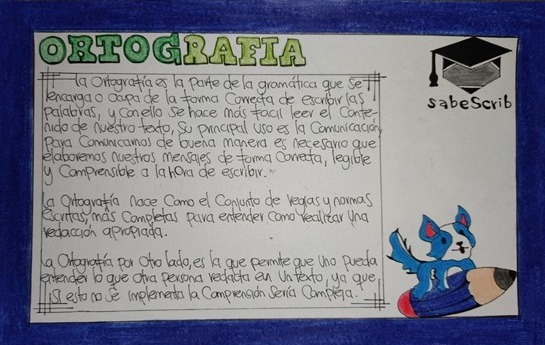 ORTOGRAFIA
sabeScrib
La Ortografía es la parte de la gramática que se
encarga o ocupa de la forma Correcta de escribir las
palabras, y con ello se hace más facil leer el Conte-
nido de nuestro texto, Su principal uso es la Comunicación,
para Comunicarnos de buena manera es necesario que
elaboremos nuestros mensajes de forma Correcta, legible
y Comprensible a la hora de escribir.
La Ortografía nace Como el Conjunto de reglas y normas
Escritas, más Completas para entender Como realizar Una
redacción apropiada.
La Ortografía, por otro lado, es la que permite que Uno pueda
entender lo que otra persona redacta en Un texto, ya que
Si esto no se implementa la Comprensión Sería Compleja.